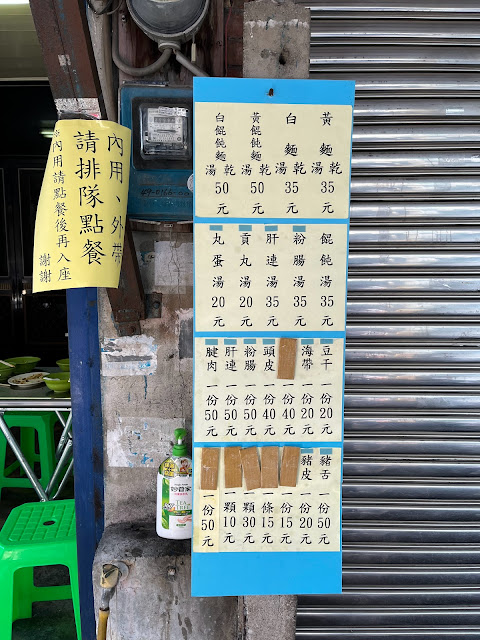 內用、外帶
請排隊點餐
*內用請點餐後再入座
謝謝
黃麵湯乾35元
白麵湯乾35元
黃餛飩麵湯乾50元
白餛飩麵湯乾50元
餛飩湯35元
粉腸湯35元
肝連湯35元
貢丸湯20元
丸蛋湯20元
豆干一份20元
海帶一份20元
一份40元
頭皮一份40元
粉腸一份50元
肝連一份50元
腱肉一份50元
豬舌一份50元
豬皮一份20元
一份15元
一條15元
一顆30元
一顆10元
一份50元
妙管家